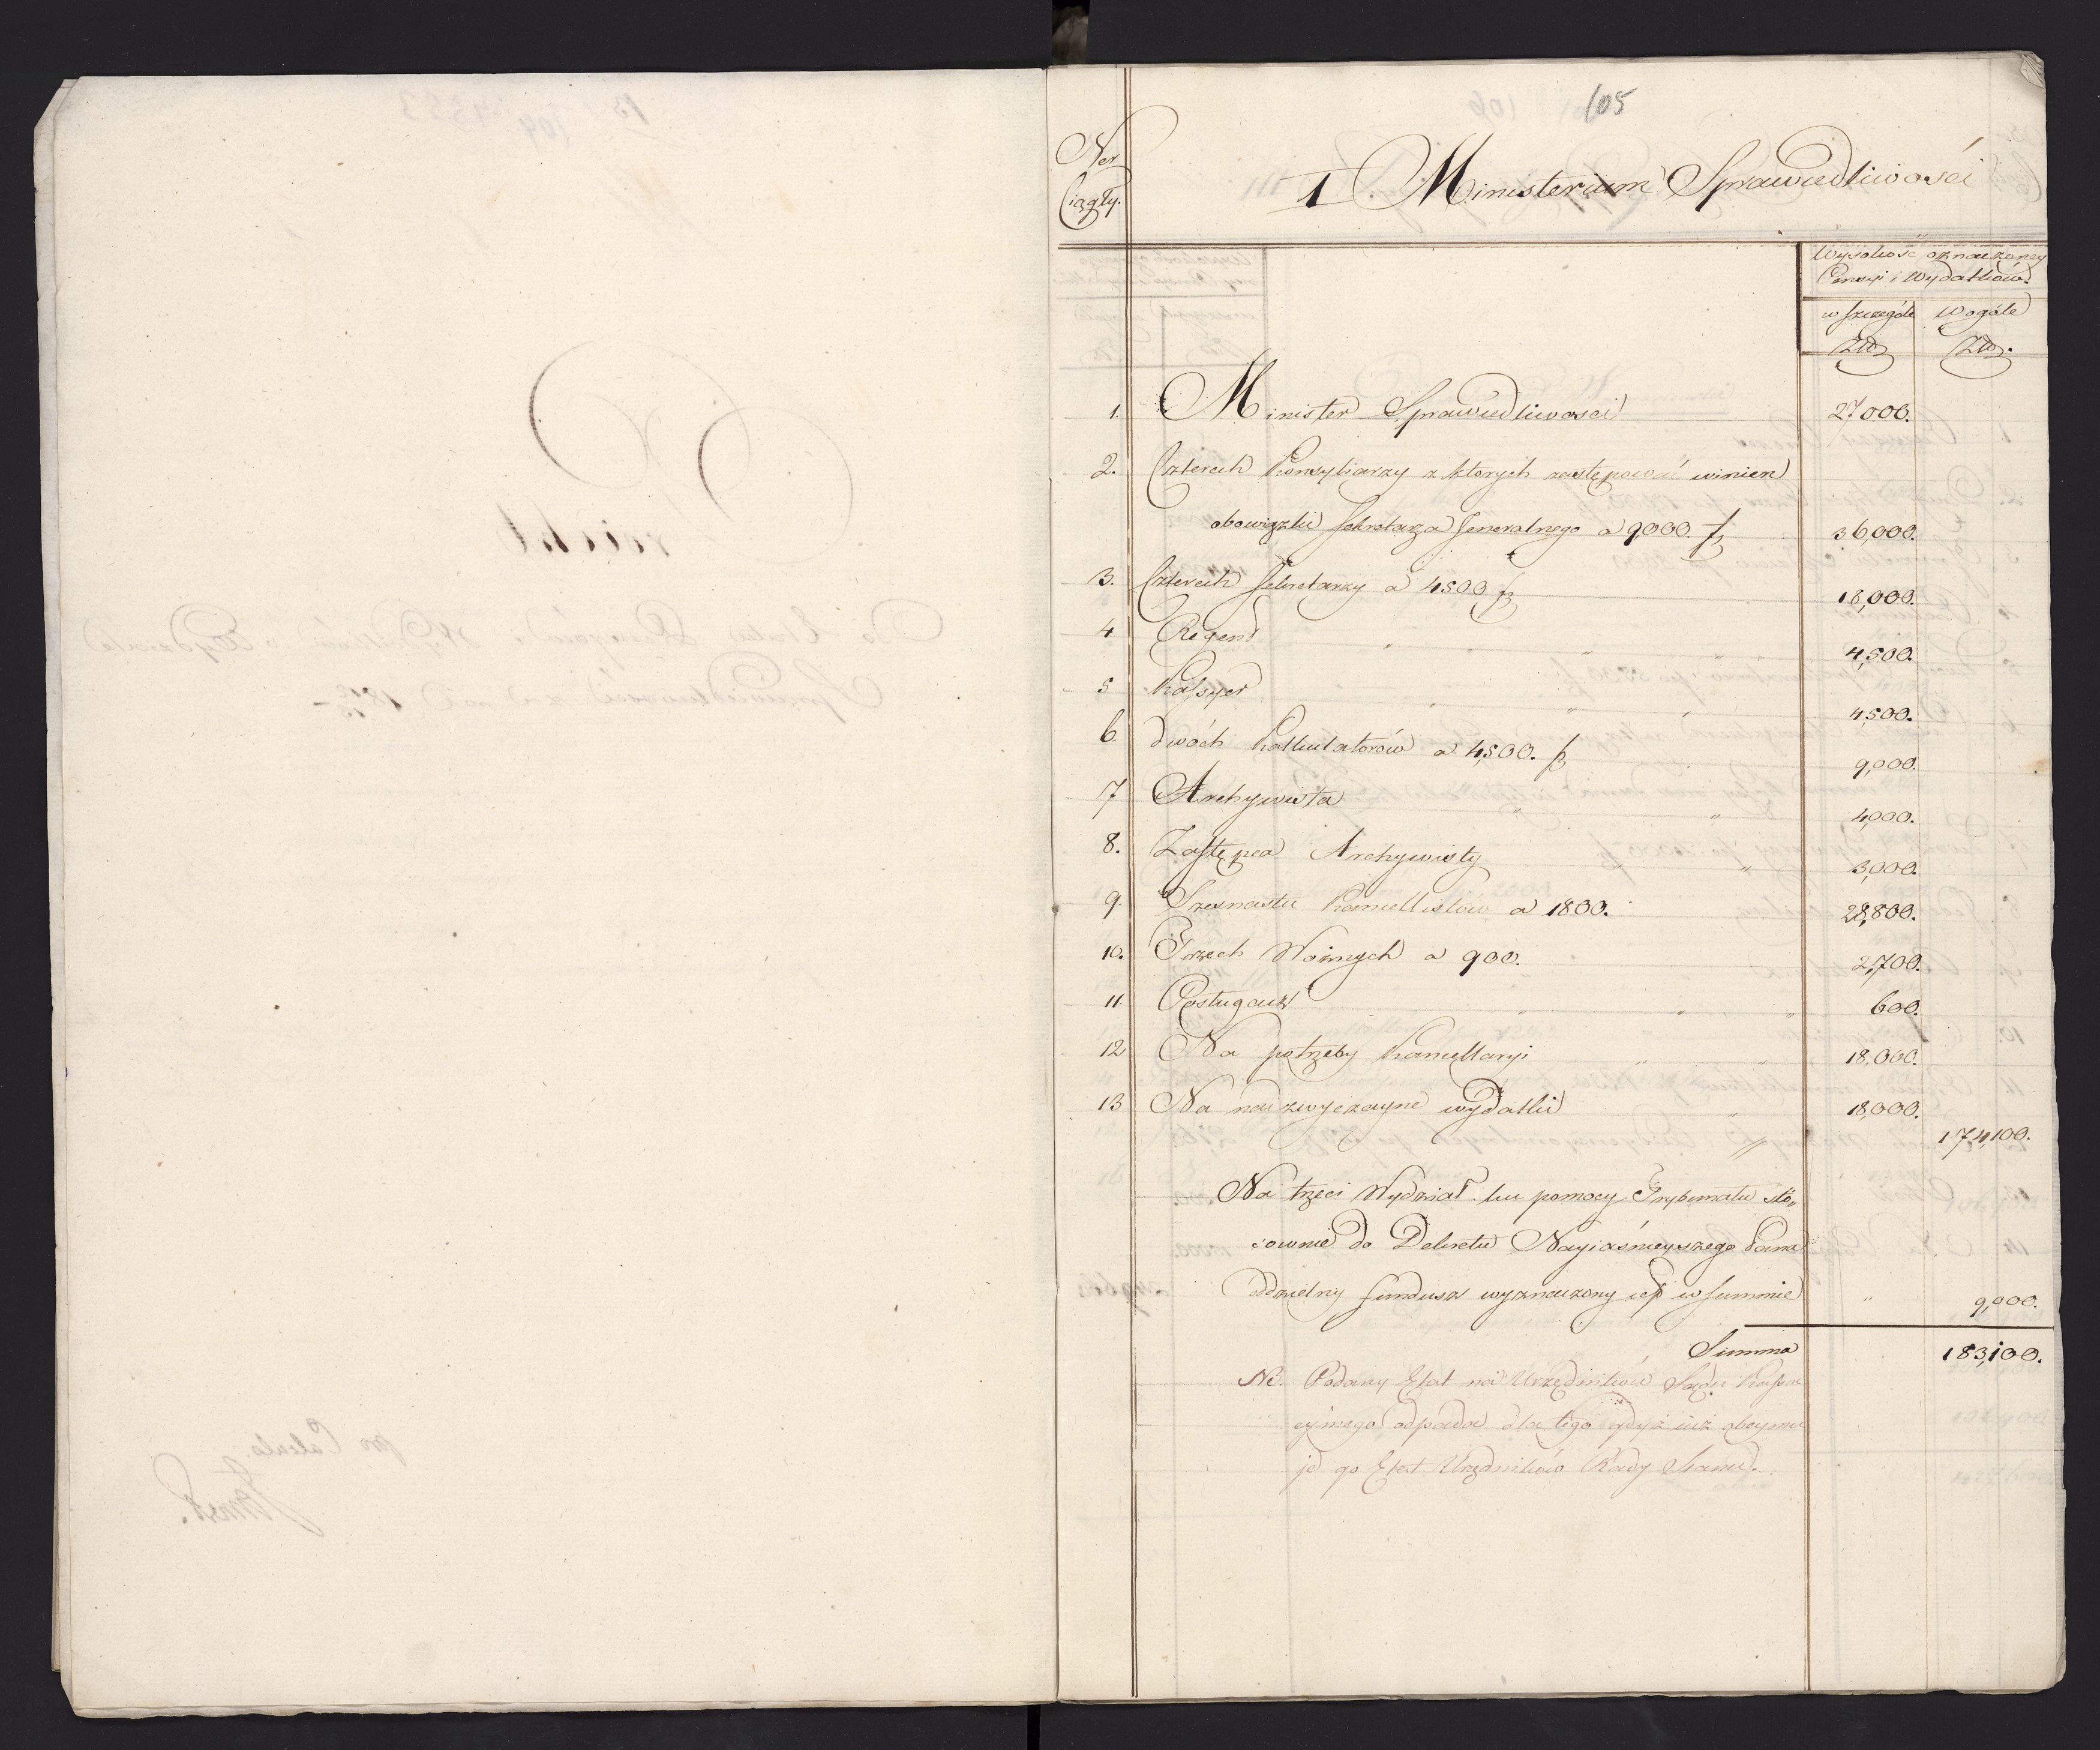 105
Ner
Ciągły.
1 Ministerium Sprawiedliwości
Wysokość oznaczoney
Pensyi i Wydatków
w szczególe Wogóle
Zł. Zł.
1. Minister Sprawiedliwosci 27000.
2. Czterech Konsyliarzy z ktorych zastępować winien
obowiązki Sekretarza Generalnego a 9000 f 36,000.
3. Czterech Sekretarzy a 4500 f 18,000.
4 Regent 4,500.
5 Kassyer 4,500.
6 dwóch Kalkulatorów a 4,500. f 9,000.
7 Archywista 4,000.
8. Zastępca Archywisty 3,000.
9. Szesnastu Kancellistów a 1800. 28,800.
10. Trzech Woźnych a 900. 2,700.
11. Posługacz 600.
12 Na potrzeby Kancellaryi 18,000.
13 Na nadzwyczayne wydatki 18,000.
174,100.
Na trzeci Wydział ku pomocy Trybunału sto„
sownie do Dekretu Nayiaśnieyszego Pana
oddzielny fundusz wyznaczony iest w summie 9,000.
Summa 183,100.
NB. Podany Etat na Urzędników Sądu Kassa
cyinego odpada dla tego gdyż iuż obeymu
je go Etat Urzędników Rady Stanu.